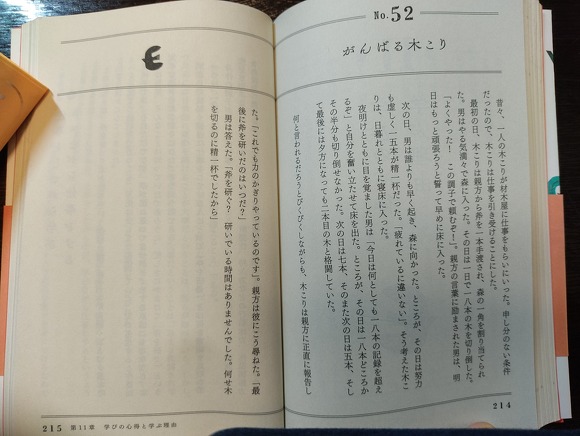 No.52
がんばる木こり
昔々、一人の木こりが材木屋に仕事をもらいにいった。申し分のない条件
だったので、木こりは仕事を引き受けることにした。
最初の日、木こりは親方から斧を一本手渡され、森の一角を割り当てられ
た。男はやる気満々で森に入った。その日は一日で一八本の木を切り倒した。
「よくやった！ この調子で頼むぞ！」。親方の言葉に励まされた男は、明
日はもっと頑張ろうと誓って早めに床に入った。
次の日、男は誰よりも早く起き、森に向かった。ところが、その日は努力
も虚しく一五本が精一杯だった。「疲れているに違いない」。そう考えた木こ
りは、日暮れとともに寝床に入った。
夜明けとともに目を覚ました男は「今日は何としても一八本の記録を超え
るぞ」と自分を奮い立たせて床を出た。ところが、その日は一八本どころか
その半分も切り倒せなかった。次の日は七本、そのまた次の日は五本、そし
て最後には夕方になっても二本目の木と格闘していた。
何と言われるだろうとびくびくしながらも、木こりは親方に正直に報告し
214
た。「これでも力のかぎりやっているのです」。親方は彼にこう尋ねた。「最
後に斧を研いだのはいつだ？」
男は答えた。「斧を研ぐ？ 研いでいる時間はありませんでした。何せ木
を切るのに精一杯でしたから」
215 第11章 学びの心得と学ぶ理由